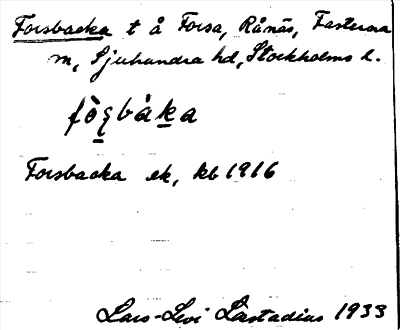 Forsbacka t å Forsa, Rånäs, Fasterna
m, Sjuhundra hd, Stockholms l.
fò̱ʂbàḵa
Forsbacka ek, kb 1916
Lars-Levi Læstadius 1933